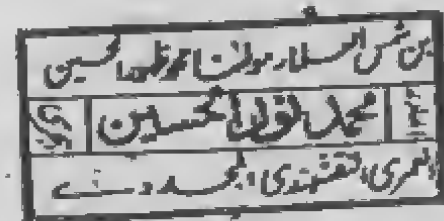 بن شمس العلماء مولانا محمد ظہور الحسین
محمد نور الحسین
العمری النقشبندی المجددی